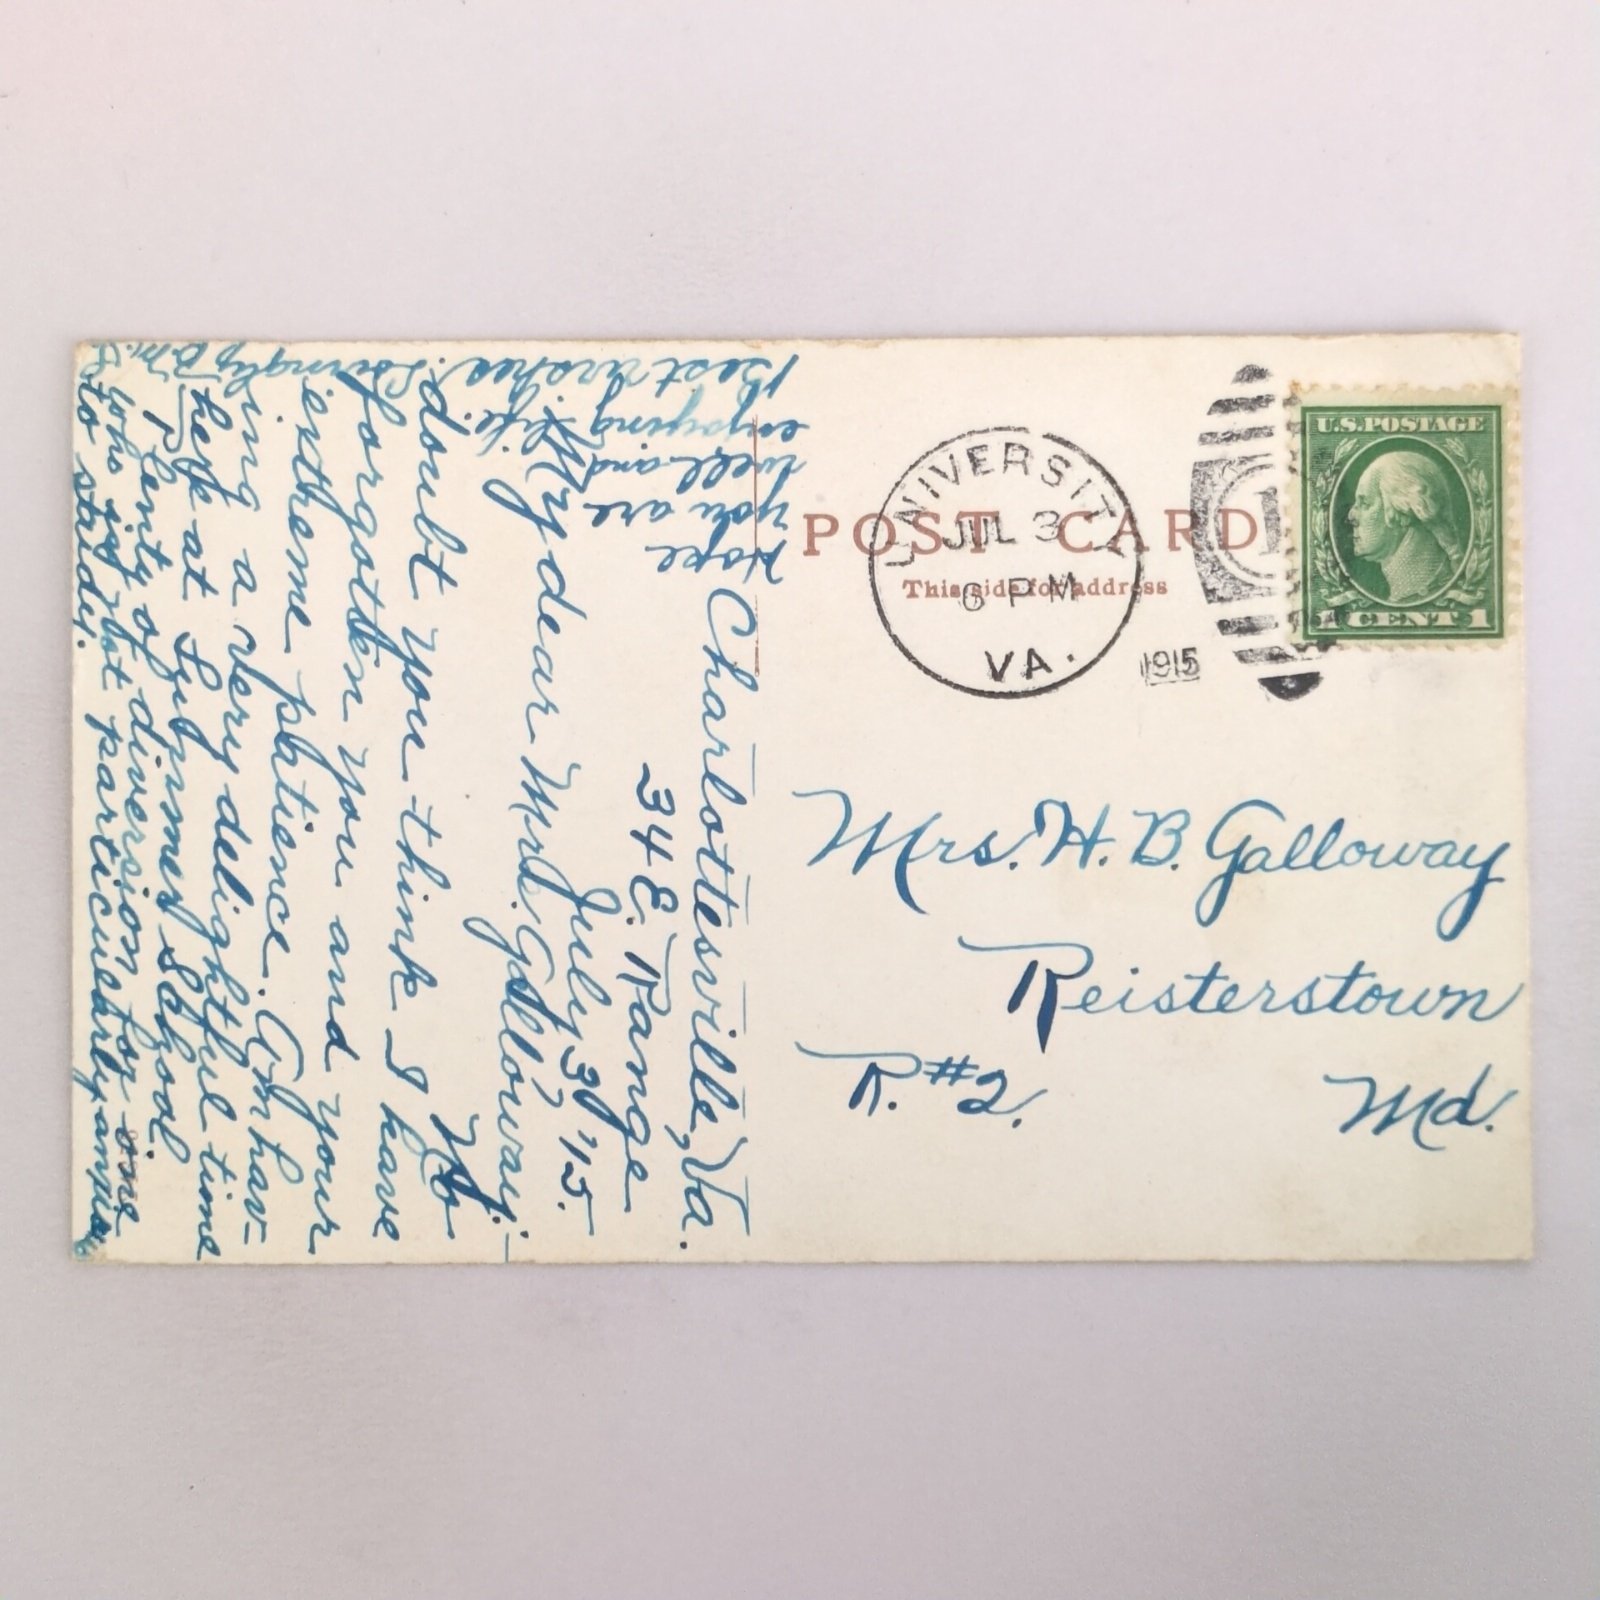 Charlottesville, Va.
34 E. Range
July 3, '15.
My dear Mrs. Galloway:-
No
doubt you think I have
forgotten you and your
extreme patience. Am hav-
ing a very delightful time
here at Summer School
Plenty of diversion for one
who is not particularly anxious
to study.
Hope
you are
well and
enjoying life.
Best wishes.
Lovingly
POST CARD
This side for address
UNIVERSITY
JUL 3
6 PM
VA.
1915
U.S. POSTAGE
1 CENT 1
Mrs. H. B. Galloway
Reisterstown
R. #2.
Md.